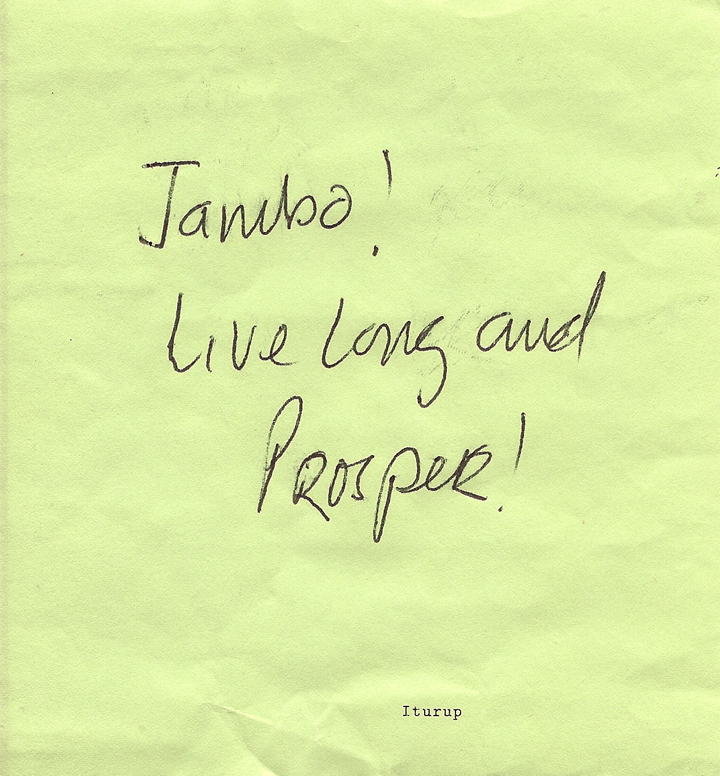 Jambo!
Live Long and
Prosper!
Iturup